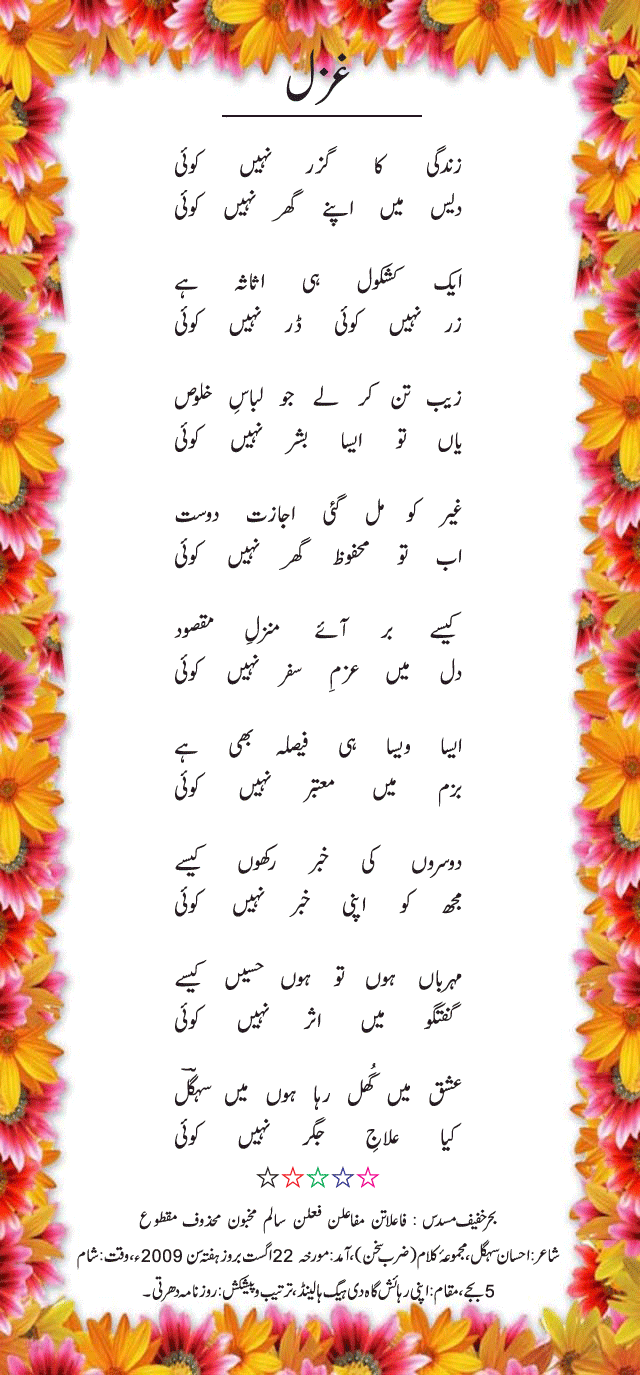 غزل
زندگی کا گزر نہیں کوئی
دیس میں اپنے گھر نہیں کوئی
ایک کشکول ہی اثاثہ ہے
زر نہیں کوئی ڈر نہیں کوئی
زیب تن کر لے جو لباسِ خلوص
یاں تو ایسا بشر نہیں کوئی
غیر کو مل گئی اجازت دوست
اب تو محفوظ گھر نہیں کوئی
کیسے بر آئے منزلِ مقصود
دل میں عزمِ سفر نہیں کوئی
ایسا ویسا ہی فیصلہ بھی ہے
بزم میں معتبر نہیں کوئی
دوسروں کی خبر رکھوں کیسے
مجھ کو اپنی خبر نہیں کوئی
مہرباں ہوں تو ہوں حسیں کیسے
گفتگو میں اثر نہیں کوئی
عشق میں گُھل رہا ہوں میں سہگلؔ
کیا علاجِ جگر نہیں کوئی
بحر خفیف مسدس : فاعلاتن مفاعلن فعلن سالم مخبون محذوف مقطوع
شاعر: احسان سہگل، مجموعۂ کلام (ضرب سخن)، آمد: مورخہ 22 اگست بروز ہفتہ سن 2009ء، وقت: شام
5 بجے، مقام: اپنی رہائش گاہ دی ہیگ ہالینڈ، ترتیب و پیشکش: روزنامہ دھرتی۔